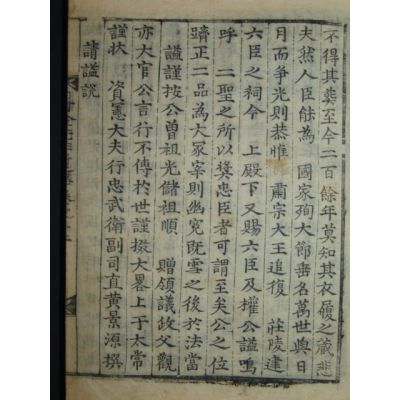 不得其葬至今二百餘年莫知其衣履之藏悲
夫然人臣能為 國家殉大節垂名萬世與日
月而爭光則恭惟 肅宗大王追復 莊陵建
六臣之祠今 上殿下又賜六臣及權公謚嗚
呼 二聖之所以奬忠臣者可謂至矣公之位
躋正二品為大冢宰則幽寃既雪之後於法當
謚謹按公曾祖光儲祖順 贈領議政父觀
亦大官公言行不傳於世謹掇大畧上于太常
謹狀 資憲大夫行忠武衛副司直黃景源撰
請謚說